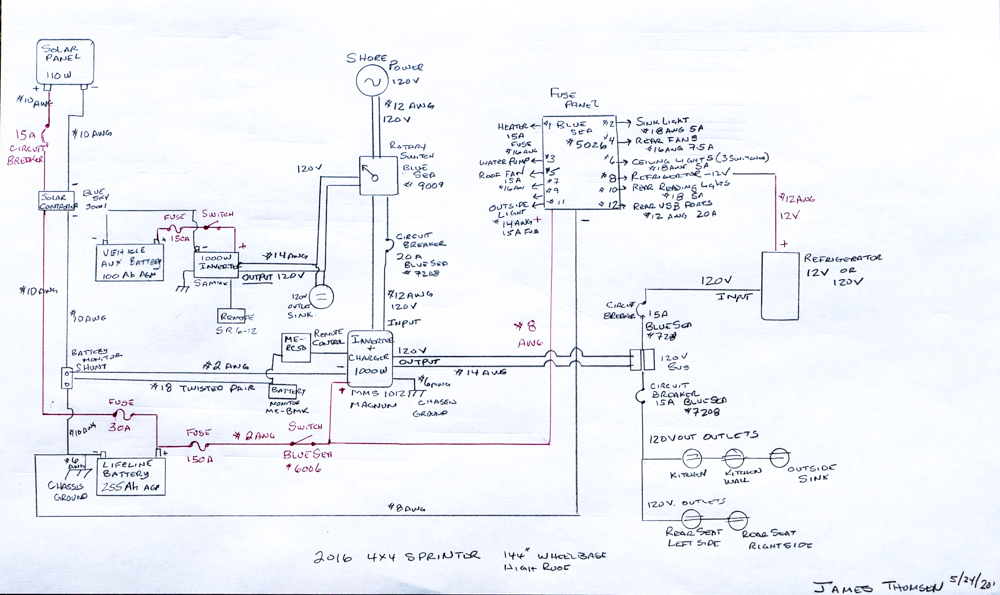 SOLAR
PANEL
110 W
+ -
#10 AWG
#10 AWG
15A
CIRCUIT
BREAKER
SOLAR
CONTROLLER
BLUE
SKY
#10 AWG
#10 AWG
FUSE
150A
SWITCH
VEHICLE
AUX BATTERY
100 Ah AGM
- +
1000W
INVERTER
SAMLEX
- +
#14 AWG
OUTPUT 120V
REMOTE
SR6-12
120V
SHORE
POWER
120V
#12 AWG
120V
ROTARY
SWITCH
BLUE
SEA
# 9009
CIRCUIT
BREAKER
20 A
BLUE SEA
# 7208
120V
OUTLET
SINK
#12 AWG
120V
INPUT
INVERTER
+
CHARGER
1000W
MMS 1012
MAGNUM
ME-
RC50
REMOTE
CONTROL
BATTERY
MONITOR
ME-BMK
BATTERY MONITOR
SHUNT
#2 AWG
#18 TWISTED PAIR
120V
OUTPUT
#14 AWG
#6 AWG
CHASSIS
GROUND
FUSE
30A
#10 AWG
#6
AWG
CHASSIS
GROUND
LIFELINE
BATTERY
255Ah AGM
- +
FUSE
150A
#2 AWG
SWITCH
BLUE SEA
#6006
#8 AWG
FUSE
PANEL
BLUE
SEA
#5026
#1 #2
#3 #4
#5 #6
#7 #8
#9 #10
#11 #12
+ -
HEATER
15A
FUSE
#16 AWG
WATER PUMP
ROOF FAN
15A
OUTSIDE
LIGHT
#14 AWG
15A FUSE
SINK LIGHT
#18 AWG 5A
REAR FANS
#16 AWG 7.5A
CEILING LIGHTS (3 SWITCHES)
#18 AWG 5A
REFRIGERATOR - 12V
REAR READING LIGHTS
#18 5A
REAR USB PORTS
#12 AWG 20A
#12 AWG
12V
+
REFRIGERATOR
12V OR
120V
120V
INPUT
CIRCUIT
BREAKER
15A
BLUE SEA
#7208
#8
AWG
120V
BUS
CIRCUIT
BREAKER
15A BLUE SEA
#7208
120V OUT OUTLETS
KITCHEN
KITCHEN
WALL
OUTSIDE
SINK
120V. OUTLETS
REAR SEAT
LEFT SIDE
REAR SEAT
RIGHT SIDE
2016 4X4 SPRINTOR 144" WHEELBASE
HIGH ROOF
JAMES THOMSEN 5/24/201